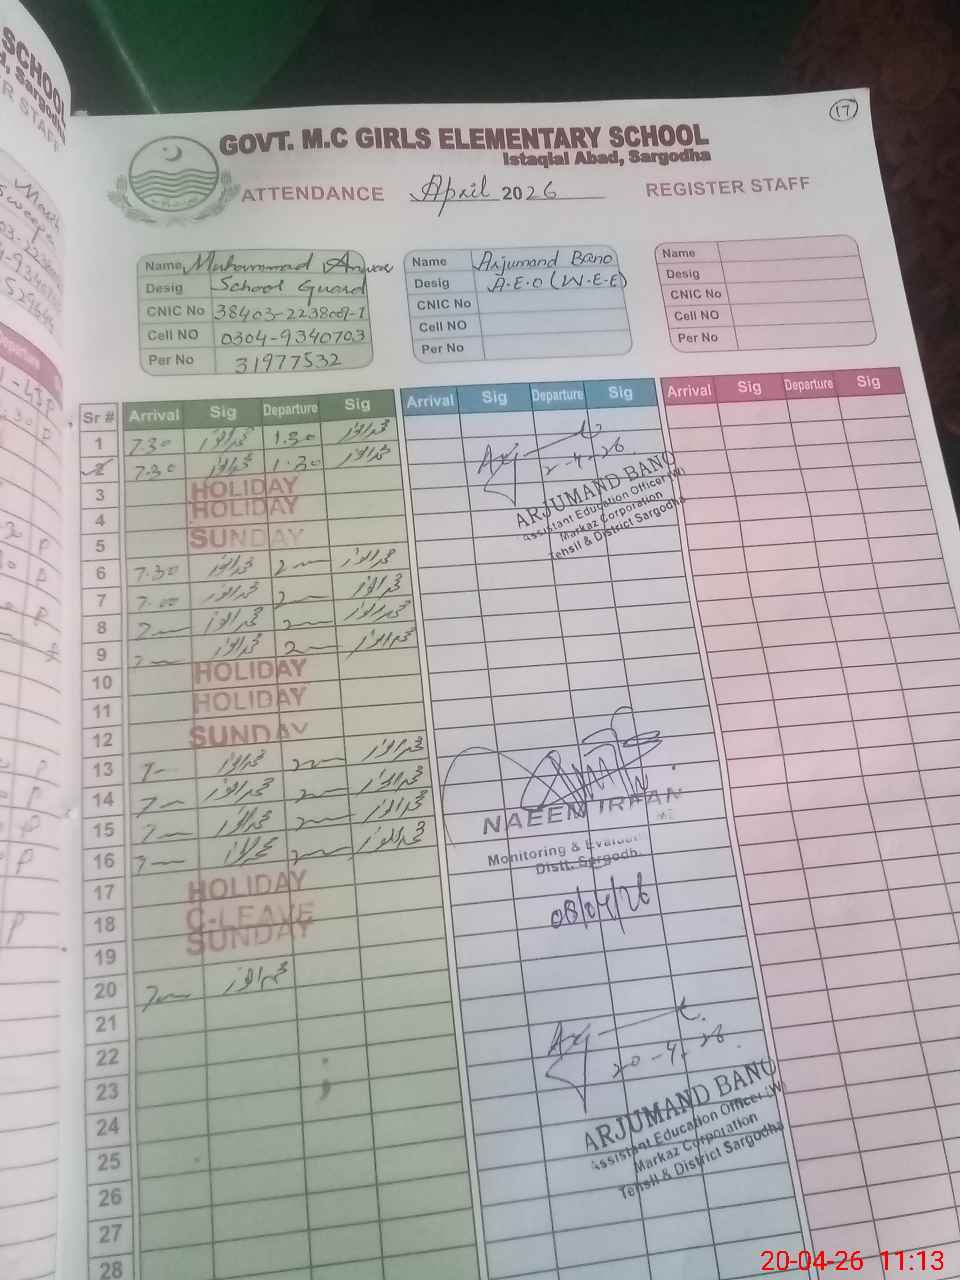 17
GOVT. M.C GIRLS ELEMENTARY SCHOOL
Istaqlal Abad, Sargodha
ATTENDANCE April 2026 REGISTER STAFF
Name Muhammad Anwar
Desig School Guard
CNIC No 38403-2238009-1
Cell NO 0304-9340703
Per No 31977532
Name Arjumand Bano
Desig A.E.O (W.E.E)
CNIC No
Cell NO
Per No
Name
Desig
CNIC No
Cell NO
Per No
Sr # Arrival Sig Departure Sig Arrival Sig Departure Sig Arrival Sig Departure Sig
1 7.30 محمد انور 1.30 محمد انور
2 7.30 محمد انور 1.30 محمد انور
3 HOLIDAY
4 HOLIDAY
5 SUNDAY
6 7.30 محمد انور محمد انور
7 7.00 محمد انور محمد انور
8 محمد انور محمد انور
9 محمد انور محمد انور
10 HOLIDAY
11 HOLIDAY
12 SUNDAY
13 محمد انور محمد انور
14 محمد انور محمد انور
15 محمد انور محمد انور
16 محمد انور محمد انور
17 HOLIDAY
18 C-LEAVE
19 SUNDAY
20 محمد انور
21
22
23
24
25
26
27
28
2-4-26
ARJUMAND BANO
Assistant Education Officer (W)
Markaz Corporation
Tehsil & District Sargodha
NAEEM IRFAN
Monitoring &
Distt. Sargodh
08/04/26
20-4-26
ARJUMAND BANO
Assistant Education Officer (W)
Markaz Corporation
Tehsil & District Sargodha
20-04-26 11:13